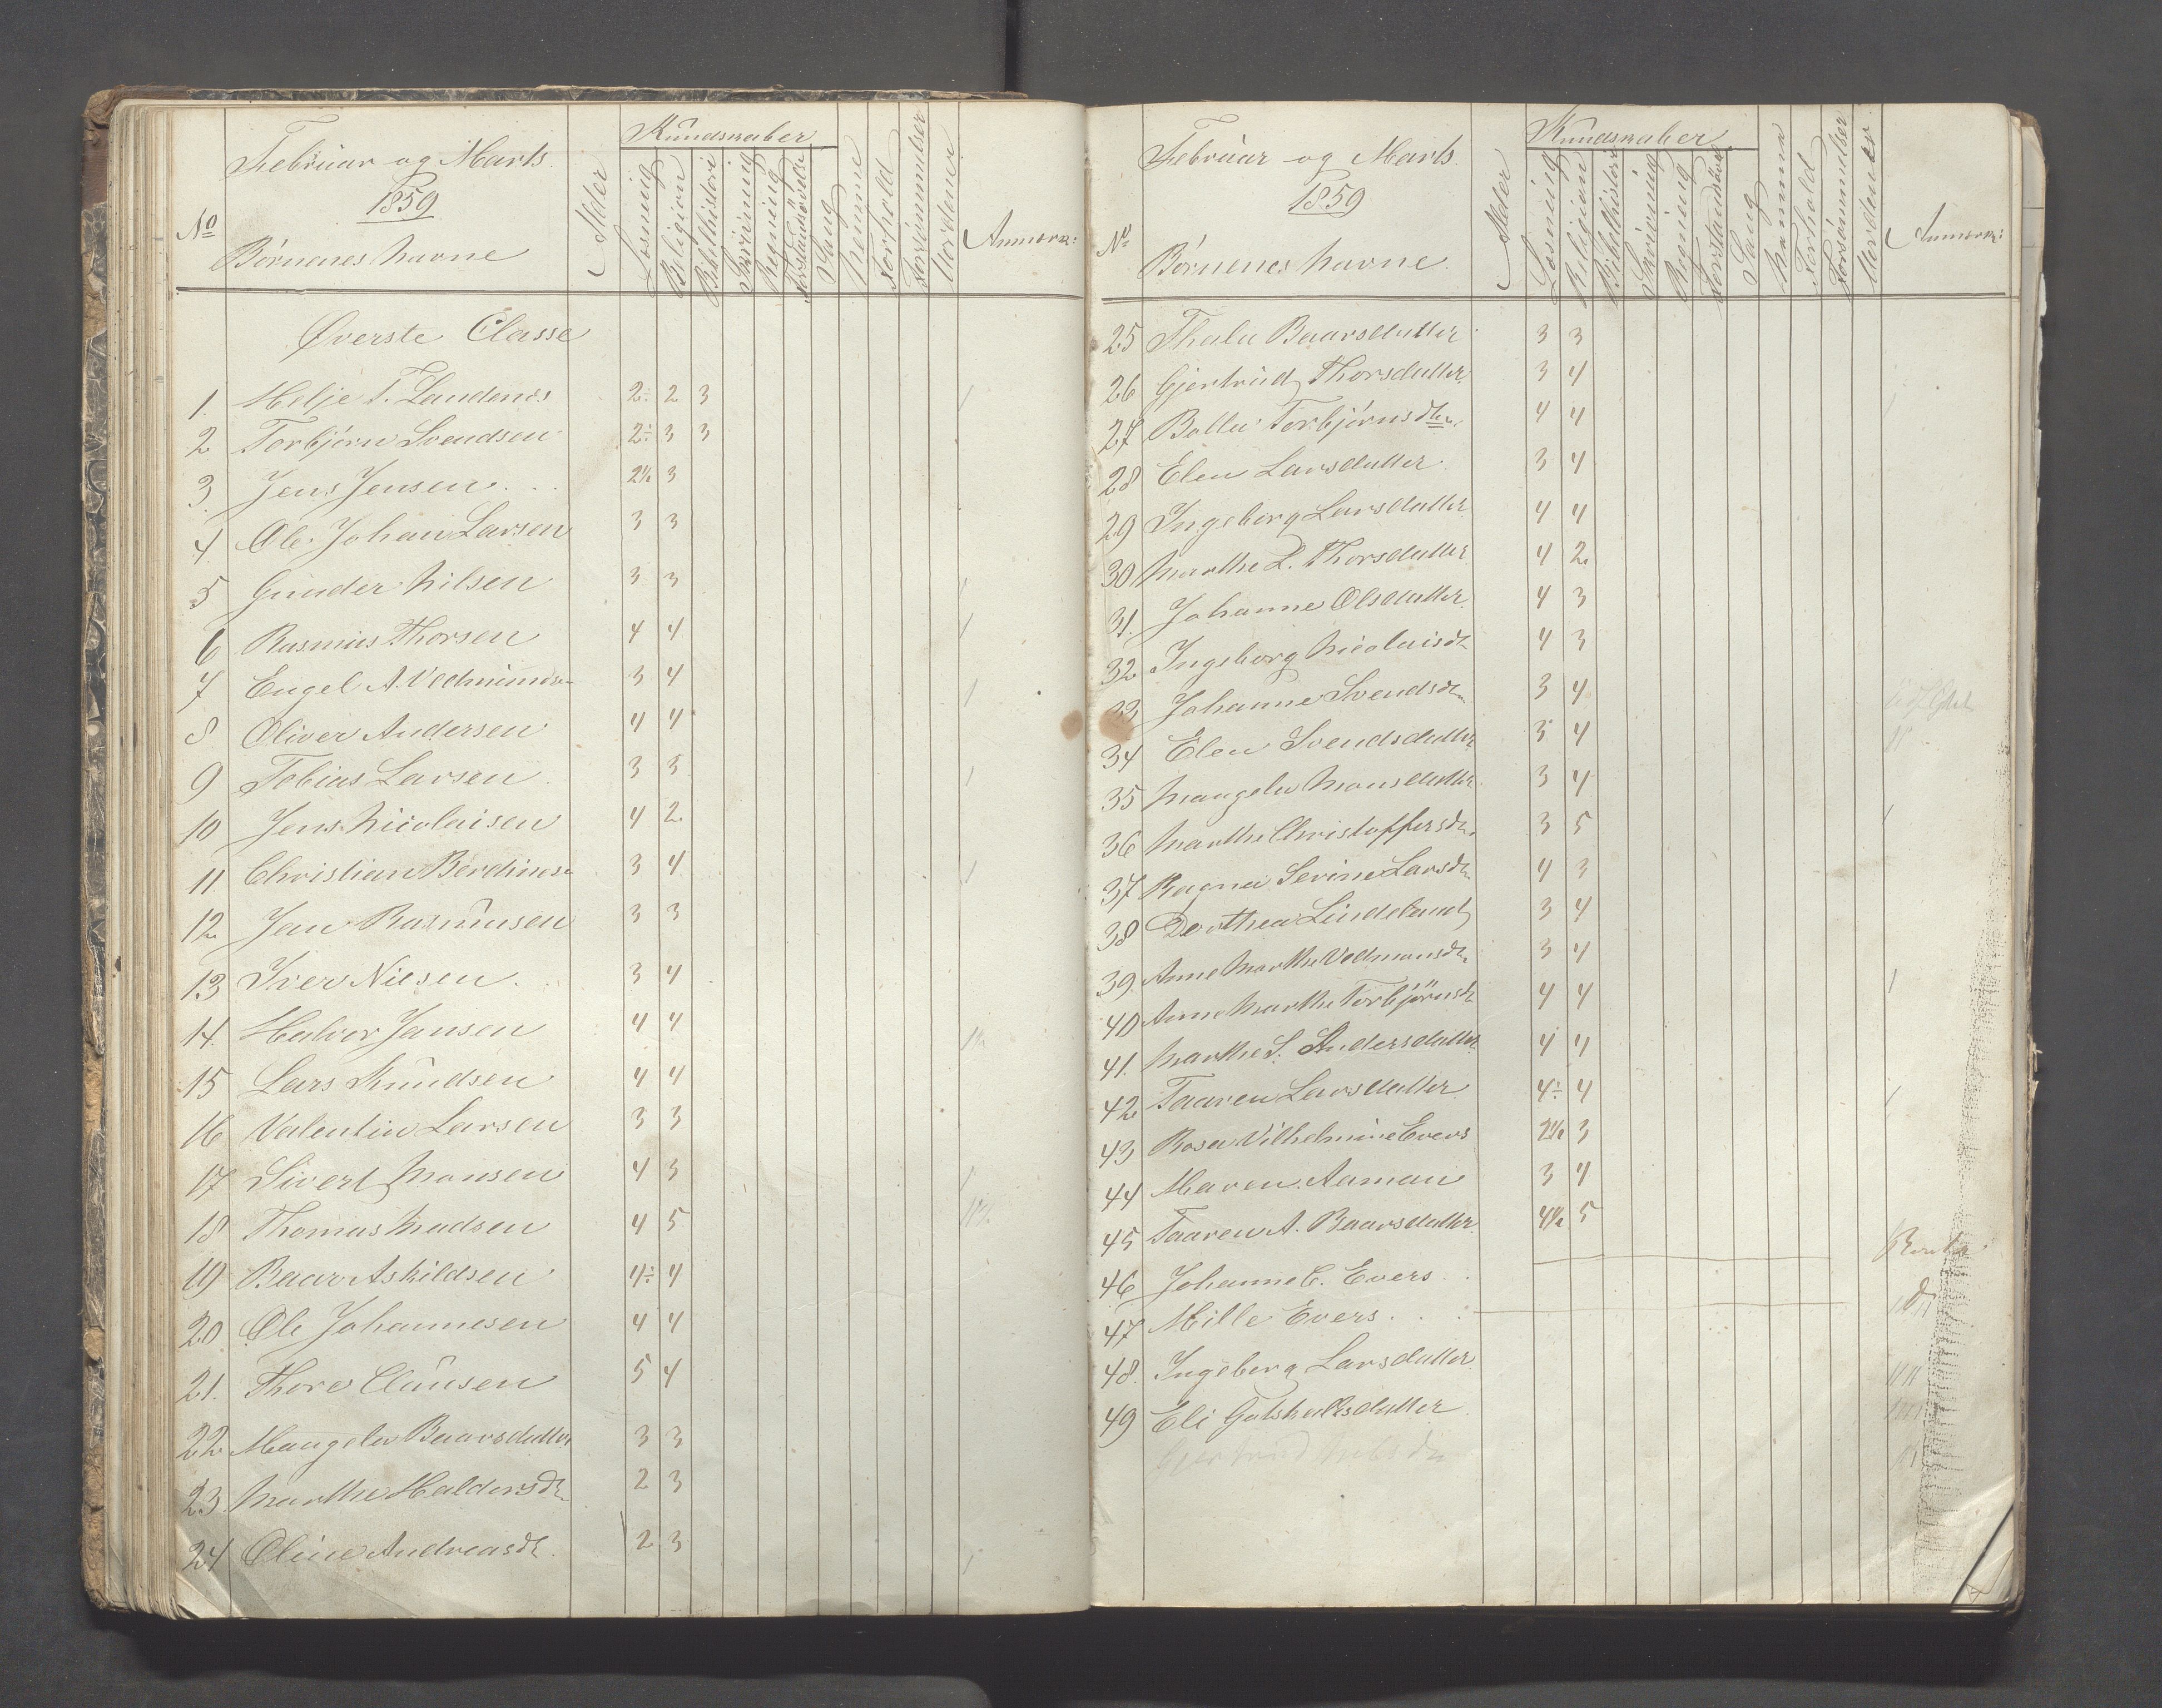 Februar og Marts.
1859
No
Børnenes Navne
Alder
Kundskaber
Læsning
Religion
Bibelhistori
Skrivning
Regning
Forstandsøvelse
Sang
Nemme
Forhold
Forsømmelser
Anmærk:
Øverste Classe
1. Helje T. Landenes 2÷ 2 3
2 Torbjørn Svendsen 2÷ 3 3
3. Jens Jensen 2½ 3
4. Ole Johan Larsen 3 3
5 Gunder Nilsen 3 3
6 Rasmus Thorsen 4 4
7 Engel A. Vedmunds 3 4
8 Oliver Andersen 4 4
9 Tobias Larsen 3 3
10 Jens Nicolaisen 4 2
11. Christian Berdines 3 4
12. Jan Rasmusen 3 3
13 Iver Nilsen 3 4
14. Halvor Jansen 4 4
15 Lars Knudsen 4 4
16 Valentin Larsen 3 3
17 Sivert Monsen 4 3
18 Thomas Madsen 4 5
19 Baar Askildsen 4÷ 4
20 Ole Johannesen 4 4
21. Thore Clausen 5 4
22. Mangela Baarsdatter 3 3
23. Marthe Haldorsdr 2 3
24 Oline Andreasdr 2 3
Februar og Marts.
1859
No
Børnenes Navne.
Alder
Kundskaber
Læsning
Religion
Bibelhistori
Skrivning
Regning
Forstandsøvel
Sang
Nemme
Forhold
Forsømmelser
Anmærk:
25 Thala Baarsdatter 3 3
26 Gjertrud Thorsdatter 3 4
27 Bolla Torbjørnsdtr 4 4
28 Elen Larsdatter 3 4
29 Ingeborg Larsdatter 4 4
30 Marthe L. Thorsdatter 4 2
31. Johanne Olsdatter 4 3
32. Ingeborg Nicolaisdr 4 3
33 Johanne Svendsdr 3 4
34 Elen Svendsdatter 3 4
35 Mangela Monsdatter 3 4
36 Marthe Christoffersdr 3 5
37 Ragna Serine Larsdr 4 3
38 Dorthea Lindeland 3 4
39. Anne Marthe Vedmunsdr 3 4
40 Anne Marthe Torbjørnsdr 4 4
41. Marthe S. Andersdatter 4 4
42 Taaren Larsdatter 4÷ 4
43 Rosa Vilhelmine Evers 2½ 3
44 Maren Aaman 3 4
45 Taaren A. Baarsdatter 4½ 5
46 Johanne C. Evers
47 Mille Evers
48. Ingeborg Larsdatter
49 Eli Gotskalksdatter